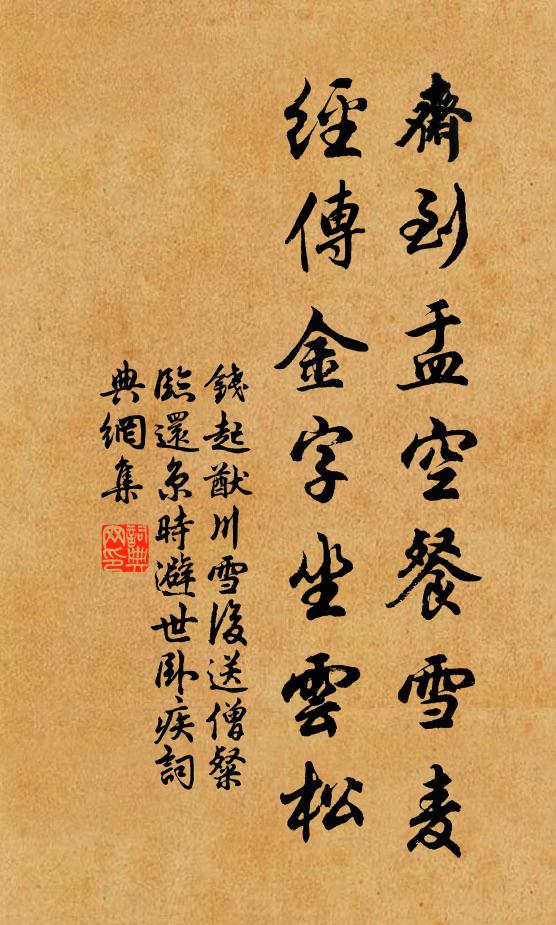 齋到盂空餐雪麦
經傳金字坐雲松
錢起猷川雪後送僧粲
臨還京時避世卧疾詞
典網集
詞典
网印